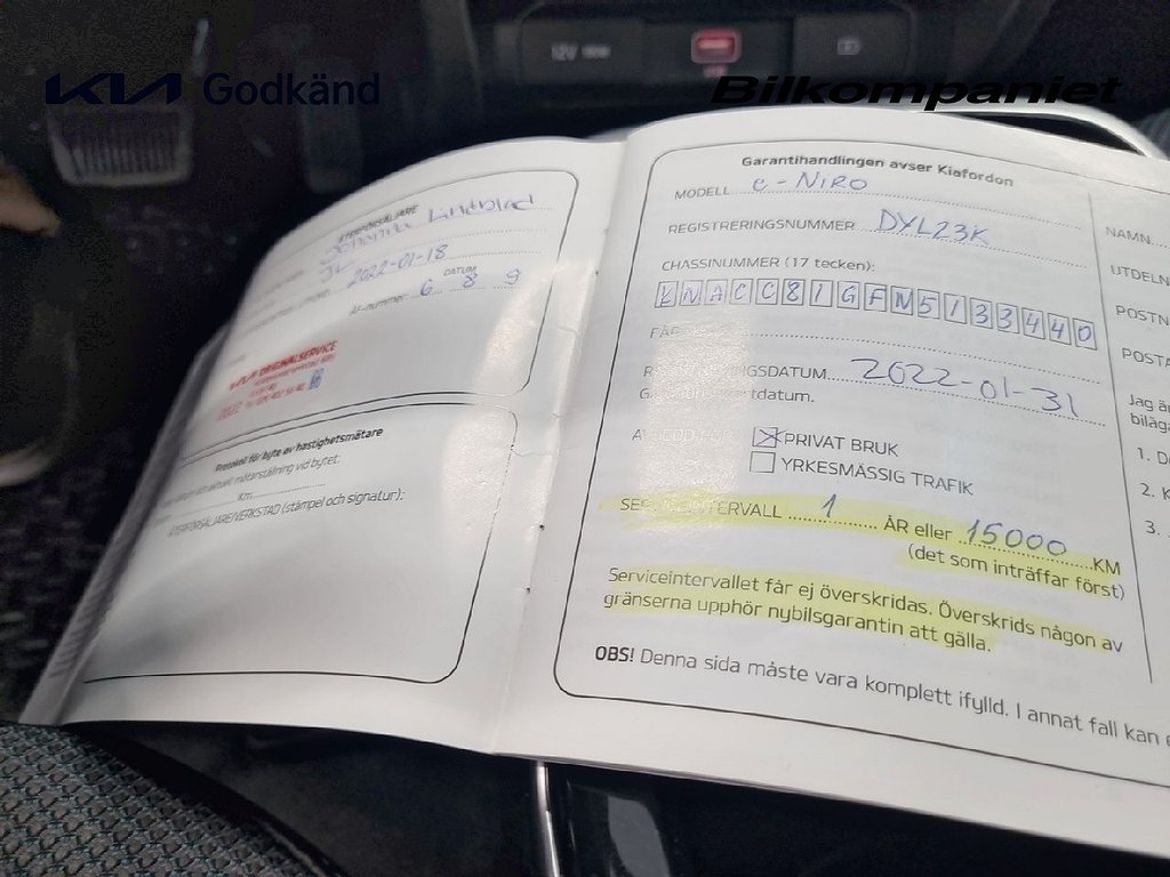 12V
KIA Godkänd
Bilkompaniet
ÅTERFÖRSÄLJARE
Lindblad
2022-01-18
DATUM
ÅF-nummer: 6 8 9
ORIGINALSERVICE
Protokoll för byte av hastighetsmätare
aktuell mätarställning vid bytet:
Km:
ÅTERFÖRSÄLJARE/VERKSTAD (stämpel och signatur):
Garantihandlingen avser Kiafordon
MODELL e-NIRO
REGISTRERINGSNUMMER DYL23K
CHASSINUMMER (17 tecken):
KNACC81GFN5133440
FÄR
INGSDATUM 2022-01-31
tdatum.
PRIVAT BRUK
YRKESMÄSSIG TRAFIK
SERVICEINTERVALL 1 ÅR eller 15000 KM
(det som inträffar först)
Serviceintervallet får ej överskridas. Överskrids någon av
gränserna upphör nybilsgarantin att gälla.
OBS! Denna sida måste vara komplett ifylld. I annat fall kan
NAMN
UTDELN
POSTN
POSTA
Jag är
biläga
1. D
2. K
3.